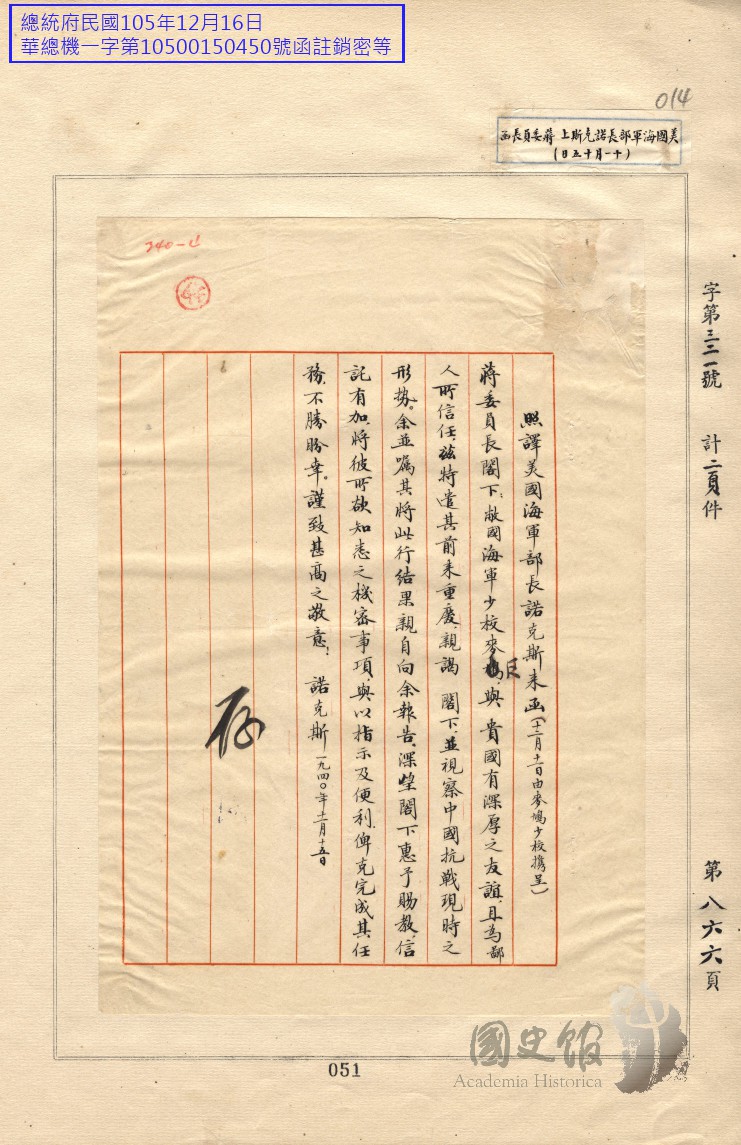 總統府民國105年12月16日
華總機一字第10500150450號函註銷密等
014
美國海軍部長諾克斯上 蔣委員長函
(十一月十五日)
字第三二一號 計二頁件 第八六六頁
740-4
照譯美國海軍部長諾克斯來函(十二月十一日由麥鳩少校攜呈)
蔣委員長閣下:敝國海軍少校麥 與 貴國有深厚之友誼,且為鄙
人所信任,茲特遣其前來重慶,親謁 閣下,並視察中國抗戰現時之
形勢。余並囑其將此行結果親自向余報告,深望閣下惠予賜教,信
託有加,將彼所欲知悉之機密事項,與以指示及便利,俾克完成其任
務,不勝盼幸。謹致甚高之敬意! 諾克斯 一九四〇年十一月十五日
存
051
國史館
Academia Historica